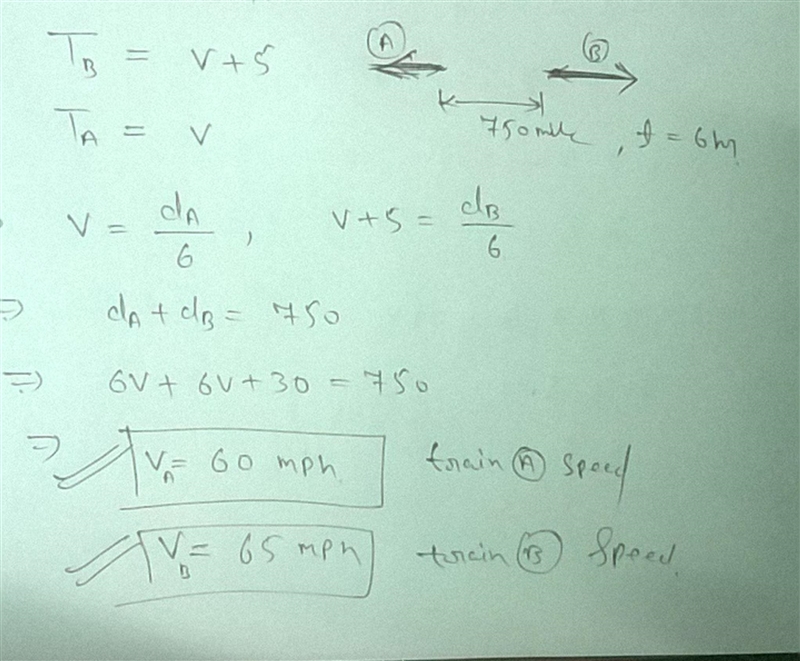 T_B = V+5
T_A = V
A
B
750 mile, t = 6h
V = dA/6, V+5 = dB/6
⇒ dA + dB = 750
⇒ 6V + 6V + 30 = 750
⇒ V_A = 60 mph train A speed
V_B = 65 mph train B Speed.